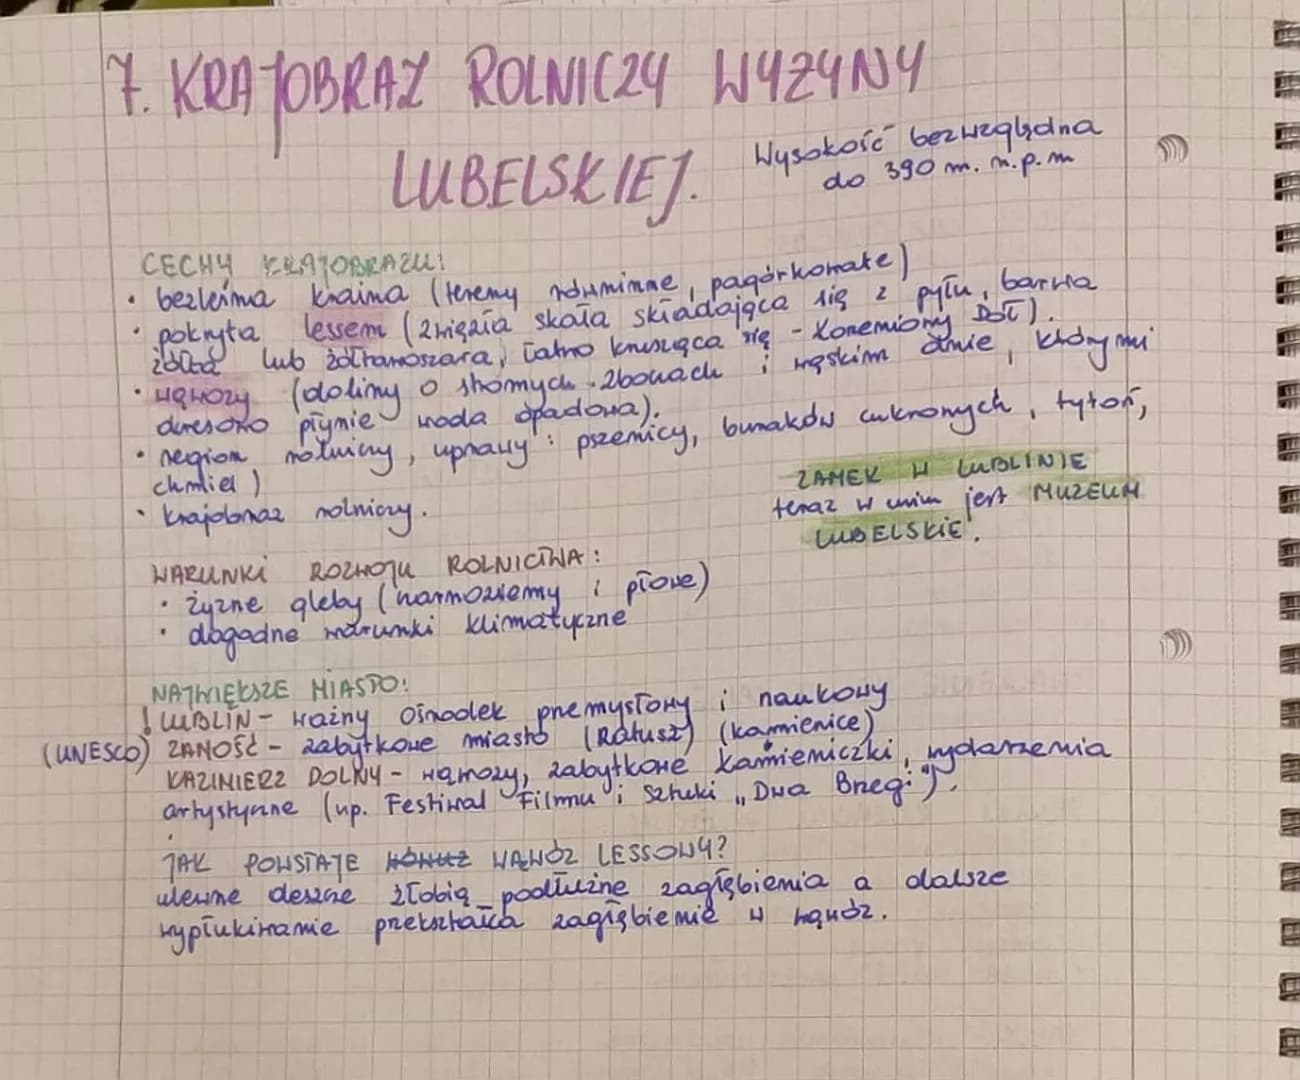 7. KRAJOBRAZ ROLNICZY WYŻYNY
LUBELSKIEJ.
Wysokość bezwzględna
do 390 m. n.p.m
CECHY KRAJOBRAZU:
• bezleśna kraina (tereny równinne, pagórkowate)
• pokryta lessem (zwięzła skała składająca się z pyłu, barwa
żółta lub żółtawoszara, łatwo krusząca się - Korzeniowy Dół).
• wąwozy (doliny o stromych zboczach i wąskim dnie, którymi
okresowo płynie woda opadowa).
• region rolniczy, uprawy: pszenicy, buraków cukrowych, tytoń,
chmiel)
• krajobraz rolniczy.
ZAMEK W LUBLINIE
teraz w nim jest MUZEUM
LUBELSKIE.
WARUNKI ROZWOJU ROLNICTWA:
• żyzne gleby (czarnoziemy i płowe)
• dogodne warunki klimatyczne
NAJWIĘKSZE MIASTO:
! LUBLIN - ważny ośrodek przemysłowy i naukowy
(UNESCO) ZAMOŚĆ - zabytkowe miasto (Ratusz) (kamienice)
KAZIMIERZ DOLNY - wąwozy, zabytkowe kamieniczki, wydarzenia
artystyczne (np. Festiwal Filmu i Sztuki „Dwa Brzegi").
JAK POWSTAJE WĄWÓZ LESSOWY?
ulewne deszcze żłobią podłużne zagłębienia a dalsze
wypłukiwanie przekształca zagłębienie w wąwóz.